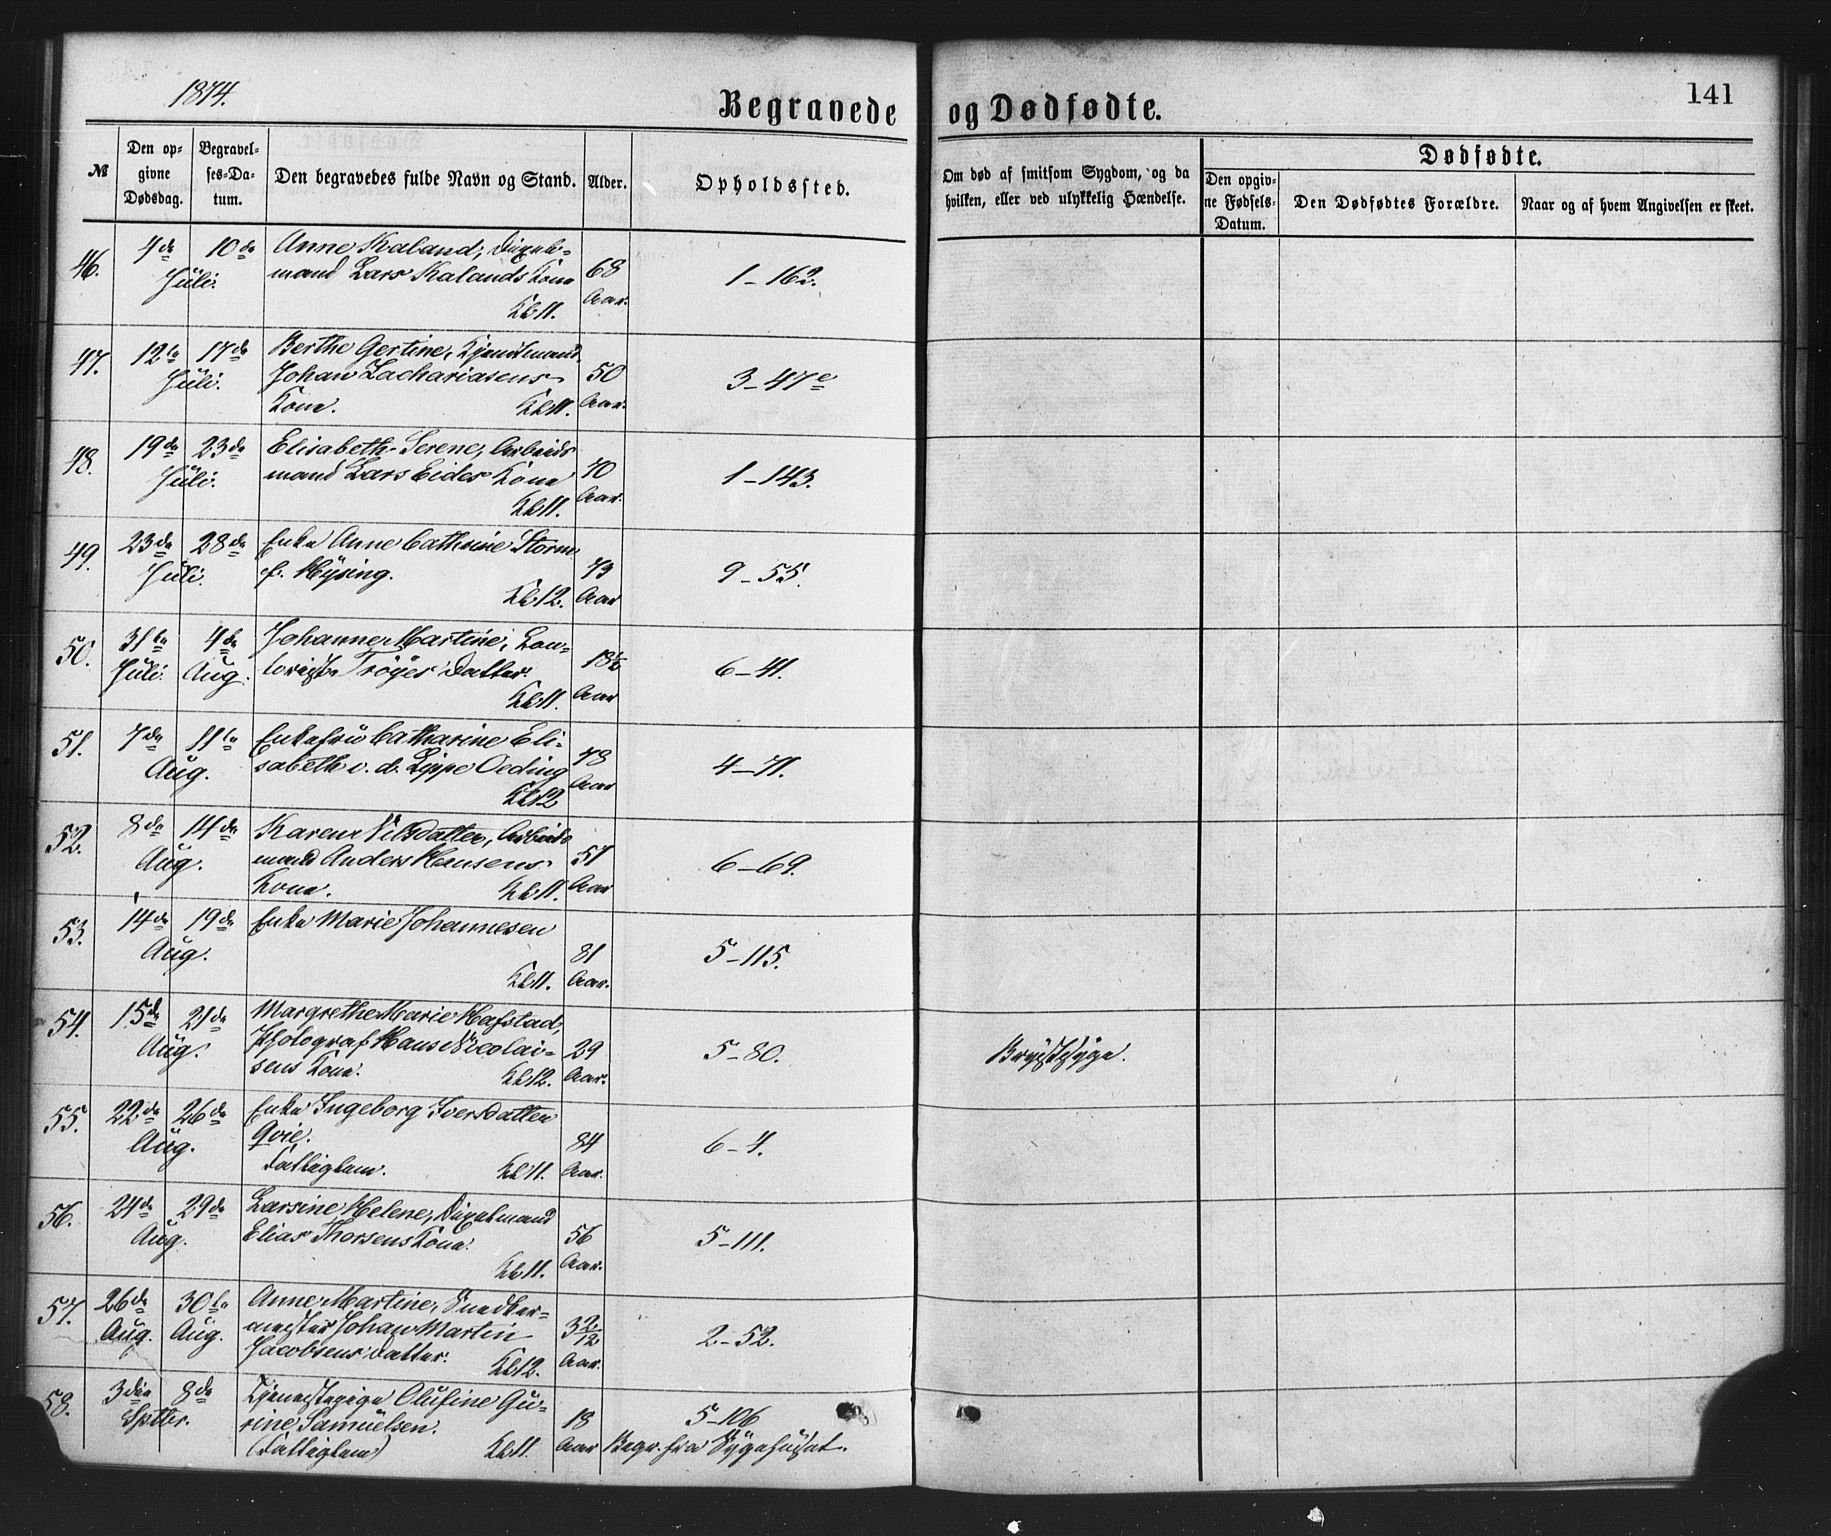 1874.
Begravede og Dødfødte.
141
№
Den opgivne Dødsdag.
Begravelses-Datum.
Den begravedes fulde Navn og Stand.
Alder.
Opholdssted.
Om død af smitsom Sygdom, og da hvilken, eller ved ulykkelig Hændelse.
Dødfødte.
Den opgivne Fødsels-Datum.
Den Dødfødtes Forældre.
Naar og af hvem Angivelsen er skeet.
46. 4de 10de Juli. Anne Kaland,
mand Lars Kalands Kone
Kl 11. 68 Aar. 1-162.
47. 12te 17de Juli. Berthe Gertine,
Johan Zachariasens
Kone. Kl 11. 50 Aar. 3-47c
48. 19de 23de Juli. Elisabeth Serene, Arbeids
mand Lars Eides Kone
Kl 11. 40 Aar. 1-143.
49. 23de 28de Juli. Enke Anne Cathrine Storm
f. Mÿsing.
Kl 12. 73 Aar 9-55.
50. 31te Juli. 4de Aug. Johanne Martine, Con-
torist Trøyes Datter.
Kl 11. 18½ Aar 6-41.
51. 7de 11te Aug. Enkefru Catharine Eli-
sabeth v. d. Lippe Oeding
Kl 12 78 Aar 4-71.
52. 8de 14de Aug. Karen Nilsdatter, Arbeids
mand Anders Hansens
Kone. Kl 11. 51 Aar 6-69.
53. 14de 19de Aug. Enke Marie Johannesen
Kl 11. 81 Aar. 5-115.
54. 15de 21de Aug. Margrethe Marie Hafstad,
Photograf Hans Nicolai-
sens Kone. Kl 12. 29 Aar. 5-80. Brystsyge.
55. 22de 26de Aug. Enke Ingeborg Iversdatter
Qvie.
Fattiglem. Kl 11. 84 Aar. 6-4.
56. 24de 29de Aug. Larsine Helene,
Elias Thorsens Kone.
Kl 11. 56 Aar. 5-111.
57. 26de Aug. 30te Aug. Anne Martine, Snedker-
mester Johan Martin
Jacobsens Datter. Kl 12. 3 2/12 Aar. 2-52.
58. 3die 8de Sptbr. Tjenestepige Olufine Gu-
rine Samuelsen.
(Fattiglem) Kl 11. 18 Aar 5-106
Begr. fra Sygehuset.